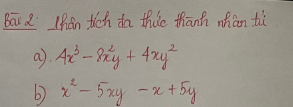 Bài 2: Phân tích đa thức thành nhân tử.
a). 4x³ - 8x²y + 4xy²
b) x² - 5xy - x + 5y